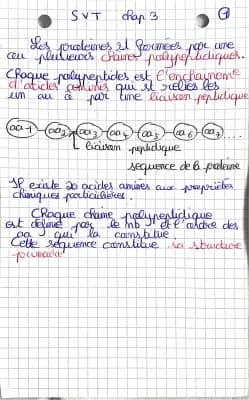 SVT chap 3 ①
Les protéines st formées par une
ou plusieurs chaines polypeptidiques.
Chaque polypeptides est l'enchainement
d'acides aminés qui st reliés les
un au à par une liaison peptidique
aa-1 aa2 aa3 aa4 aa5 aa6 aa7 ....
liaison peptidique
séquence de la protéine
Il existe 20 acides aminés aux propriétés
chimiques particulières.
Chaque chaine polypeptidique
est définie par le nb et l'ordre des
aa qui la constitue.
Cette séquence constitue sa structure
primaire